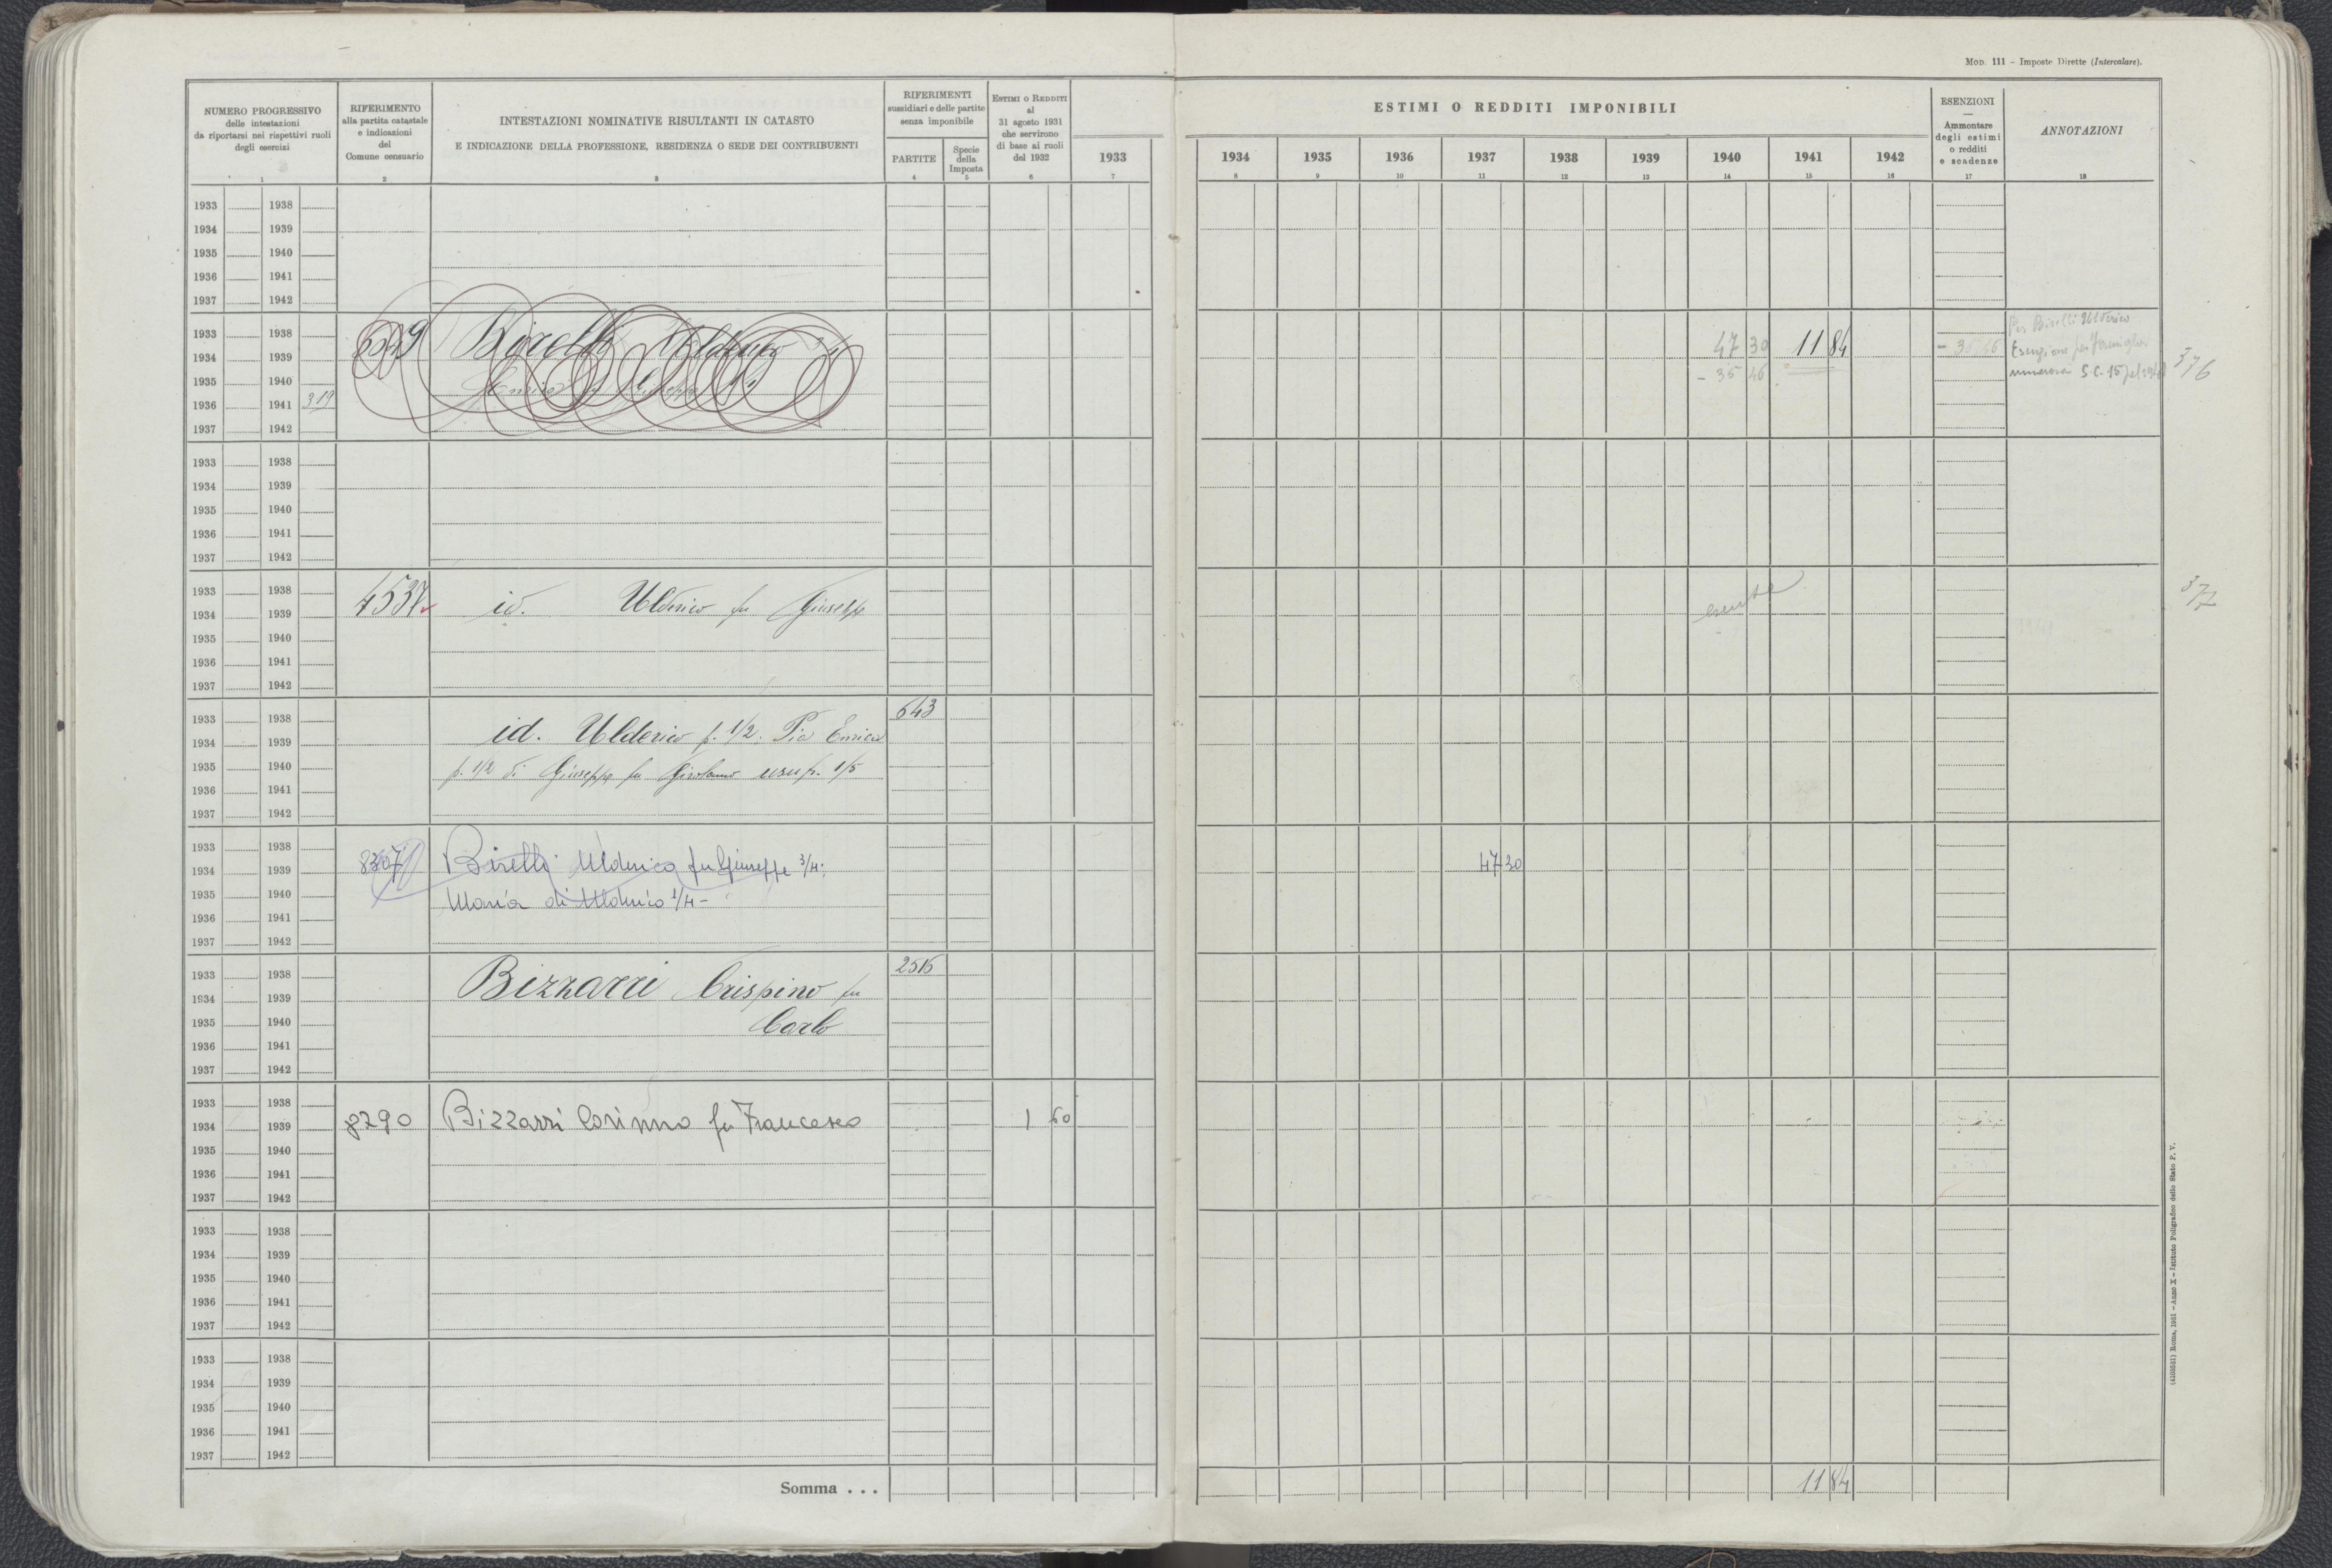 MOD. 111 – Imposte Dirette (Intercalare).
NUMERO PROGRESSIVO
delle intestazioni
da riportarsi nei rispettivi ruoli
degli esercizi
1
RIFERIMENTO
alla partita catastale
e indicazioni
del
Comune censuario
2
INTESTAZIONI NOMINATIVE RISULTANTI IN CATASTO
E INDICAZIONE DELLA PROFESSIONE, RESIDENZA O SEDE DEI CONTRIBUENTI
3
RIFERIMENTI
sussidiari e delle partite
senza imponibile
PARTITE
4
Specie
della
Imposta
5
ESTIMI O REDDITI
al
31 agosto 1931
che servirono
di base ai ruoli
del 1932
6
1933
7
ESTIMI O REDDITI IMPONIBILI
1934 1935 1936 1937 1938 1939 1940 1941 1942
8 9 10 11 12 13 14 15 16
ESENZIONI
—
Ammontare
degli estimi
o redditi
e scadenze
17
ANNOTAZIONI
18
1933 1938
1934 1939
1935 1940
1936 1941
1937 1942
1933 1938 Per Birelli Ulderico
1934 1939 Birelli Ulderico 47 30 11 84 Esenzione per famiglia
1935 1940 - 35 46 numerosa S.C. 15 376
1936 1941 319
1937 1942
1933 1938
1934 1939
1935 1940
1936 1941
1937 1942
1933 1938 377
1934 1939 4537 id. Ulderico fu Giuseppe esente
1935 1940
1936 1941
1937 1942
1933 1938 643
1934 1939 id. Ulderico p. 1/2; Pia Enrica
1935 1940 p. 1/2 di Giuseppe fu Girolamo usufr. 1/5
1936 1941
1937 1942
1933 1938
1934 1939 8307 Birelli Ulderico fu Giuseppe 3/4; 47 30
1935 1940 Maria di Ulderico 1/4 -
1936 1941
1937 1942
1933 1938 2516
1934 1939 Bizzarri Crispino fu
1935 1940 Carlo
1936 1941
1937 1942
1933 1938
1934 1939 8290 Bizzarri Corinno fu Francesco 1 60
1935 1940
1936 1941
1937 1942
1933 1938
1934 1939
1935 1940
1936 1941
1937 1942
1933 1938
1934 1939
1935 1940
1936 1941
1937 1942
Somma . . . 11 84
(4105561) Roma, 1931 - Anno X - Istituto Poligrafico dello Stato P. V.